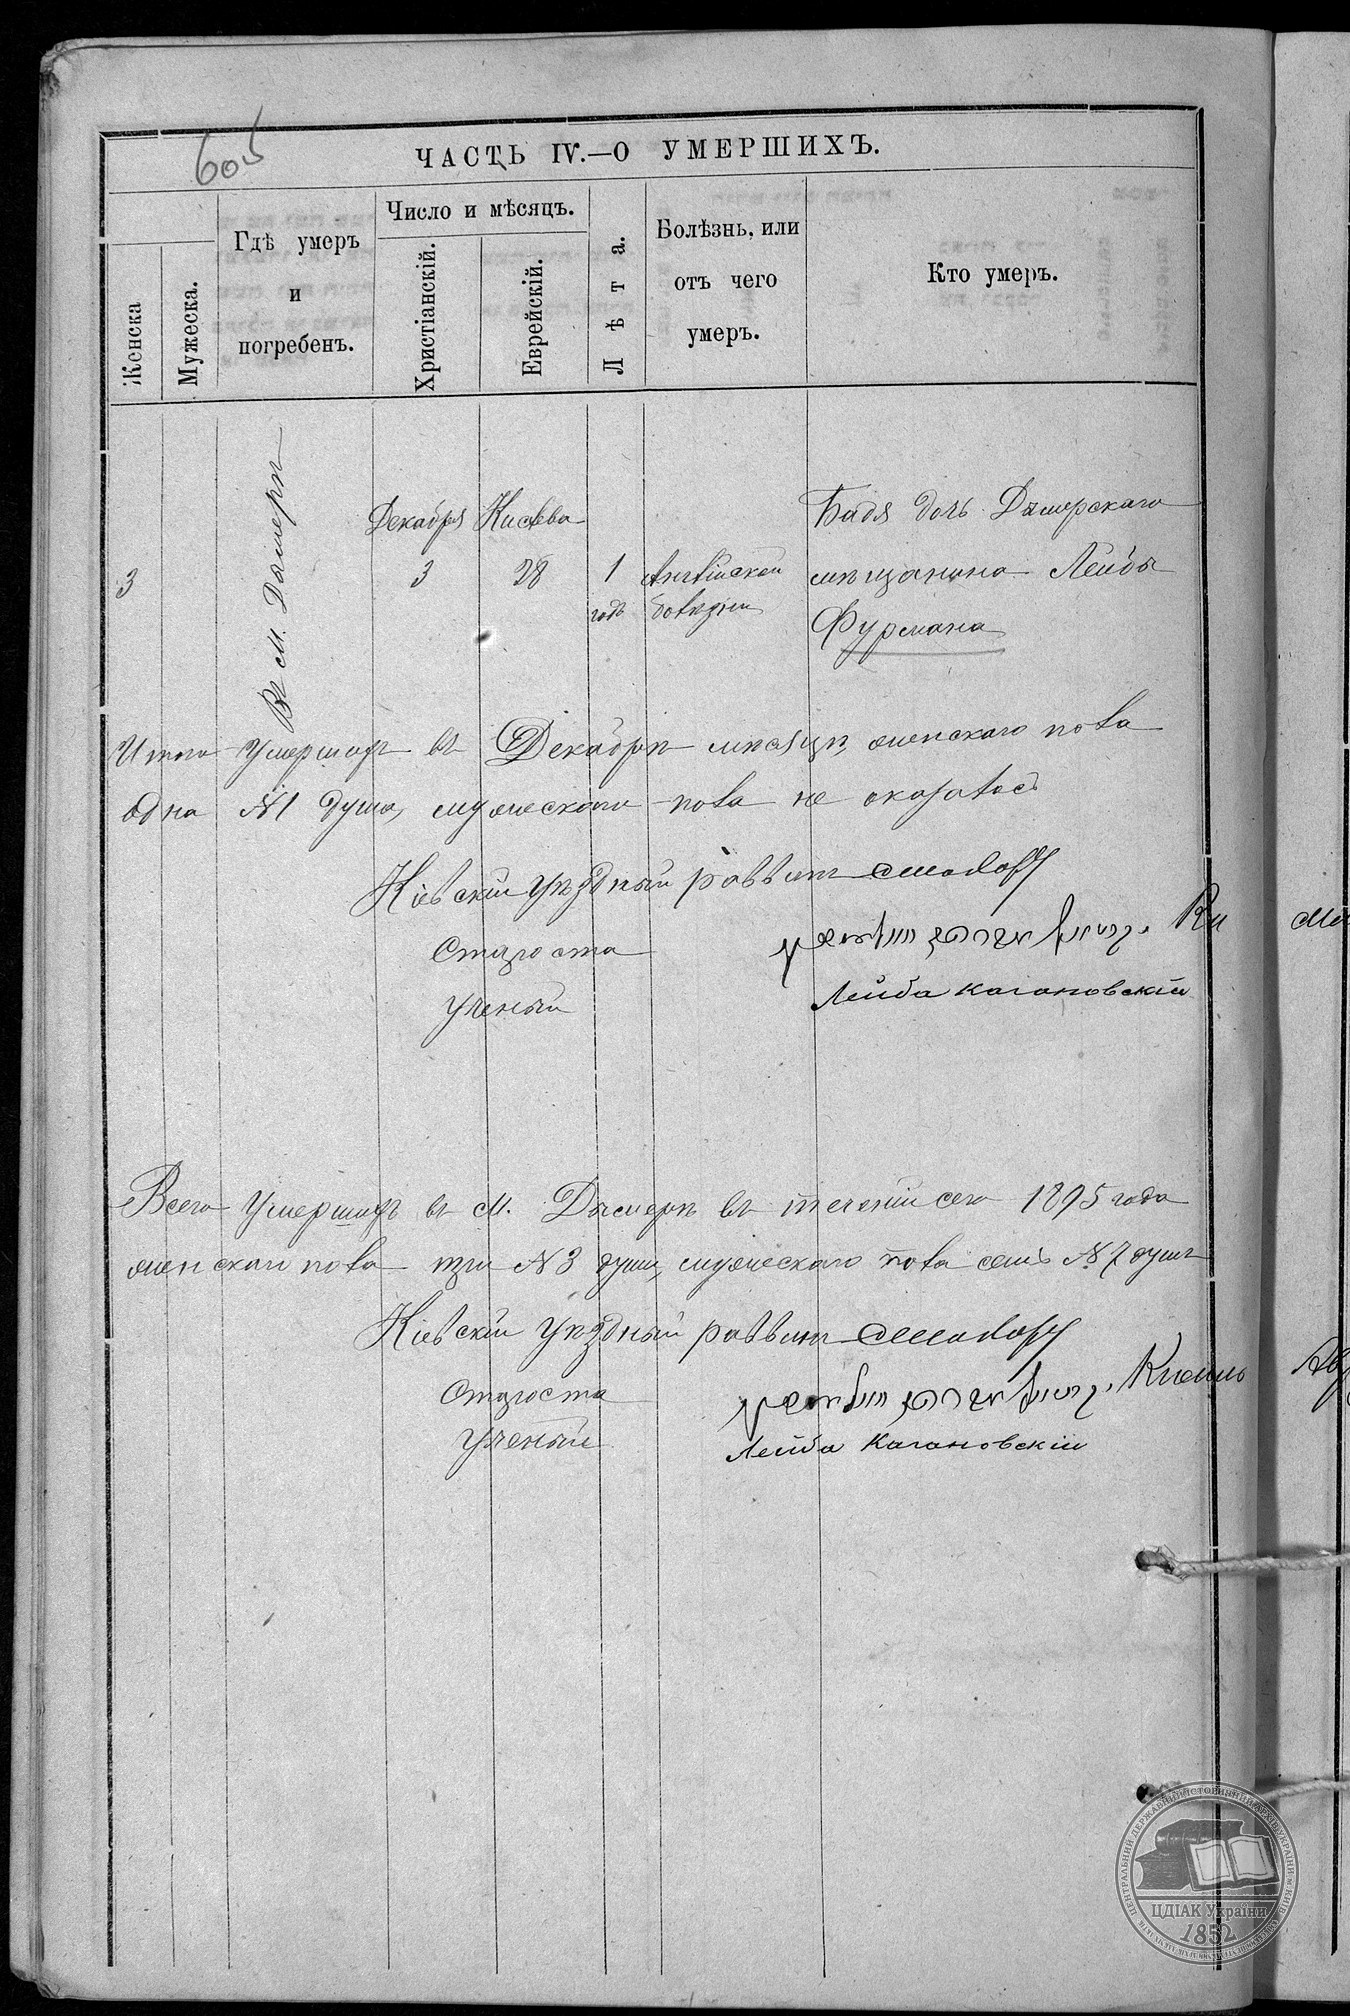 605
ЧАСТЬ IV.—О УМЕРШИХЪ.
Женска
Мужеска.
Гдѣ умеръ
и
погребенъ.
Число и мѣсяцъ.
Христіанскій.
Еврейскій.
Лѣта.
Болѣзнь, или
отъ чего
умеръ.
Кто умеръ.
3
Въ М. Дымерѣ
Декабря
3
Кислева
28
1
годъ
Англійской
болѣзни
Бадя дочь Дымерскаго
мѣщанина Лейбы
Фурмана
Итого Умершихъ въ Декабрѣ мѣсяцѣ женскаго пола
одна №1 душа, мужескаго пола не оказалось
Кіевскій Уѣздный раввинъ
Староста
Ученый
Лейба Кагановскій
Всего Умершихъ въ М. Дымерѣ въ теченіи сего 1895 года
женскаго пола три №3 души, мужескаго пола семь №7 душъ
Кіевскій Уѣздный раввинъ
Староста
Ученый
Лейба Кагановскій
ЦДІАК України
1852